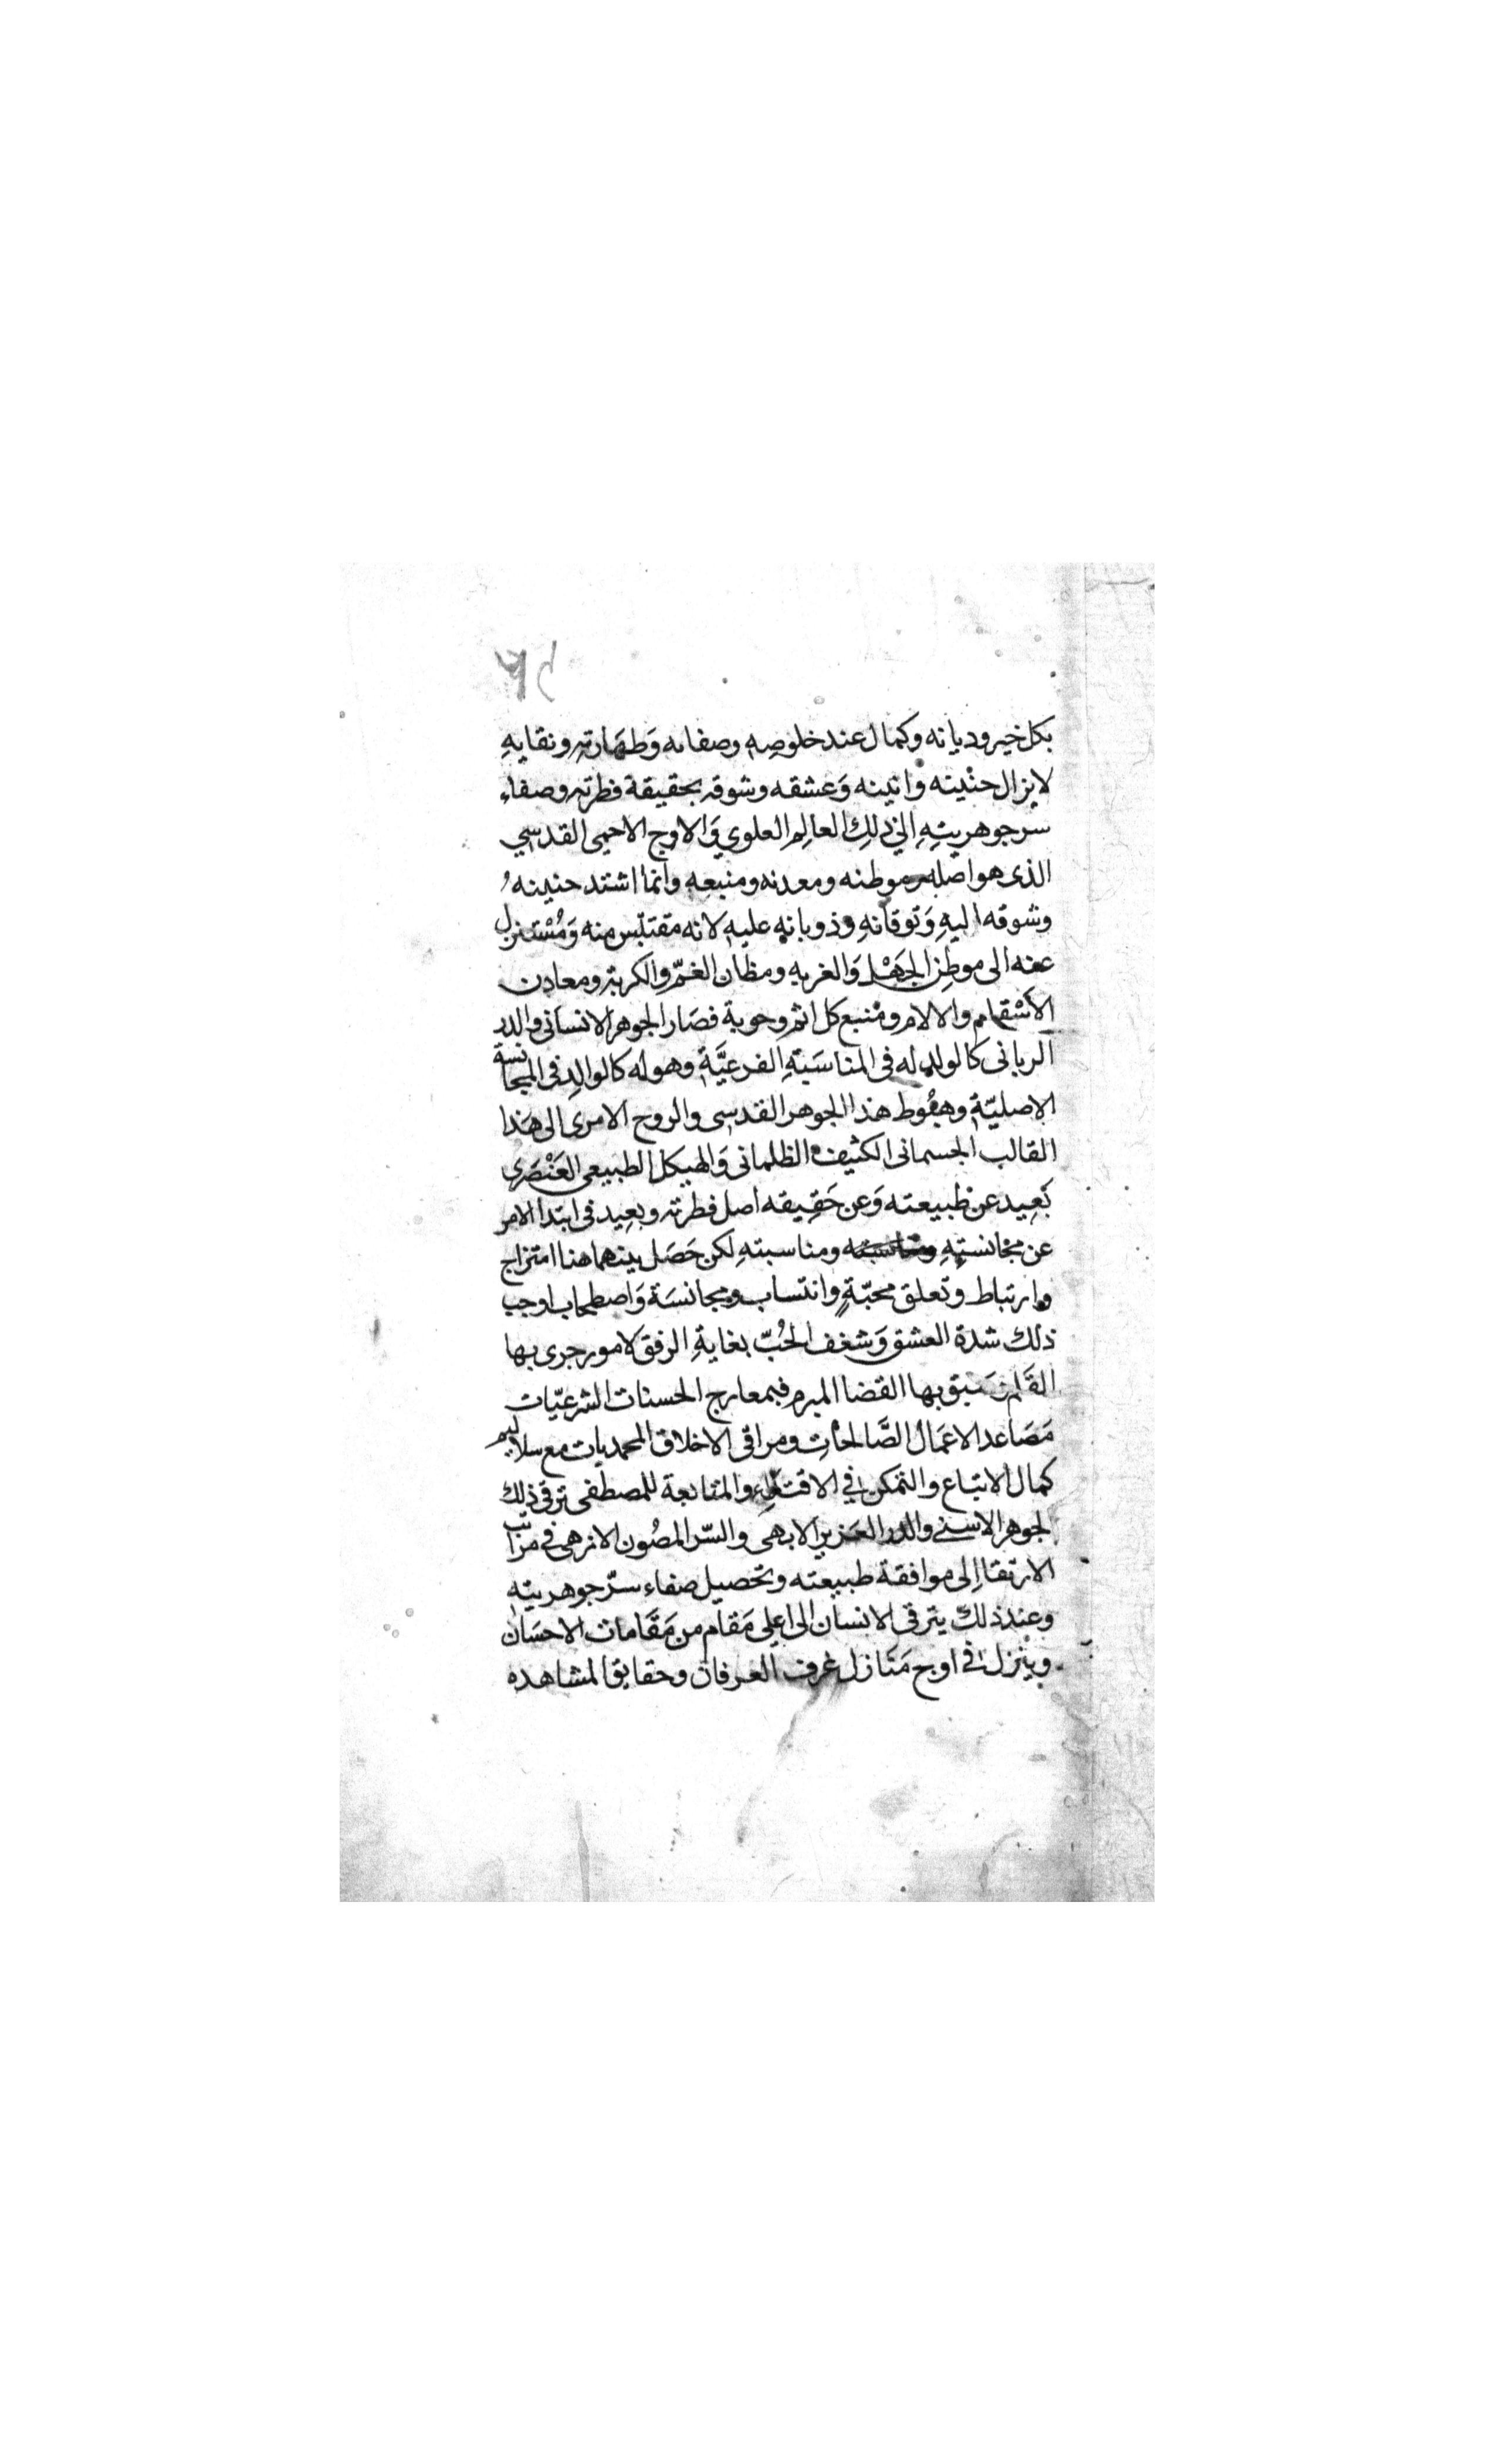 بكل خير وديانه وكمال عند خلوصِهِ وصفاىه وَطهَارتِهِ ونقايهِ
لا يزال حنْينه وانينه وَعشقه وشوقه بحقيقة فطرته وصفاءِ
سر جوهريتِهِ الي ذلِك العالِم العلوي وَالاوج الاحمى القدسِي
الذى هو اصله وموطنه ومعدنه ومنبعهِ وانما اشتد حنينهُ
وشوقه اليهِ وَتوقانهِ وذوبانِهِ عليهِ لانه مقتبس منه وَمُسْتنزل
عنه الى موطِن الجَهْل وَالغربهِ ومظان الغمّ والكربة ومعادن
الأسْقام والالام ومنبع كل اثم وحوبة فصَار الجوهر الانسانى والدر
الربانى كالولدِ له فى المناسَبةِ الفرعيَّةِ وهو له كالوالِدِ فى المجانسة
الاصليّةِ وهبُوط هذا الجوهر القدسِى والروح الامرى الى هَذا
القالب الجسمانى الكثيف الظلمانى وَالهيكل الطبيعى العَنْصَرى
بَعِيد عن طبيعته وَعن حَقِيقه اصل فطرته وبعِيد فى ابتدا الامر
عن مجانستِهِ ومناسبتهِ لكن حَصَل بينهما هنا امتزاج
وارتباط وتعلق محبّةٍ وانتساب ومجانسَة وَاصطحاب اوجب
ذلك شدة العشق وَشغف الحُبّ بغايةِ الرفق لامور جرى بها
القَلم سَبق بها القضا المبرم فبمعارج الحسنات الشرعيّات
مَصَاعد الاعمَال الصَّالحاتِ ومراقى الاخلاق المحمديات مع سلاليم
كمال الاتباع والتمكن في الاقتفاءِ والمتابعة للمصطفى ترقى ذلك
الجوهر الاسنى والدر العَزيز الابهى والسّر المصُون الازهى فى مراتب
الارتقا اِلى موافقة طبيعته وتحصيل صفاء سرّ جوهريتِهِ
وعند ذلك يترقى الانسان الى اعلى مَقام من مَقَامات الاحسَان
وينْزل فى اوج مَنَازل غرف العرفان وحقايق المشاهده